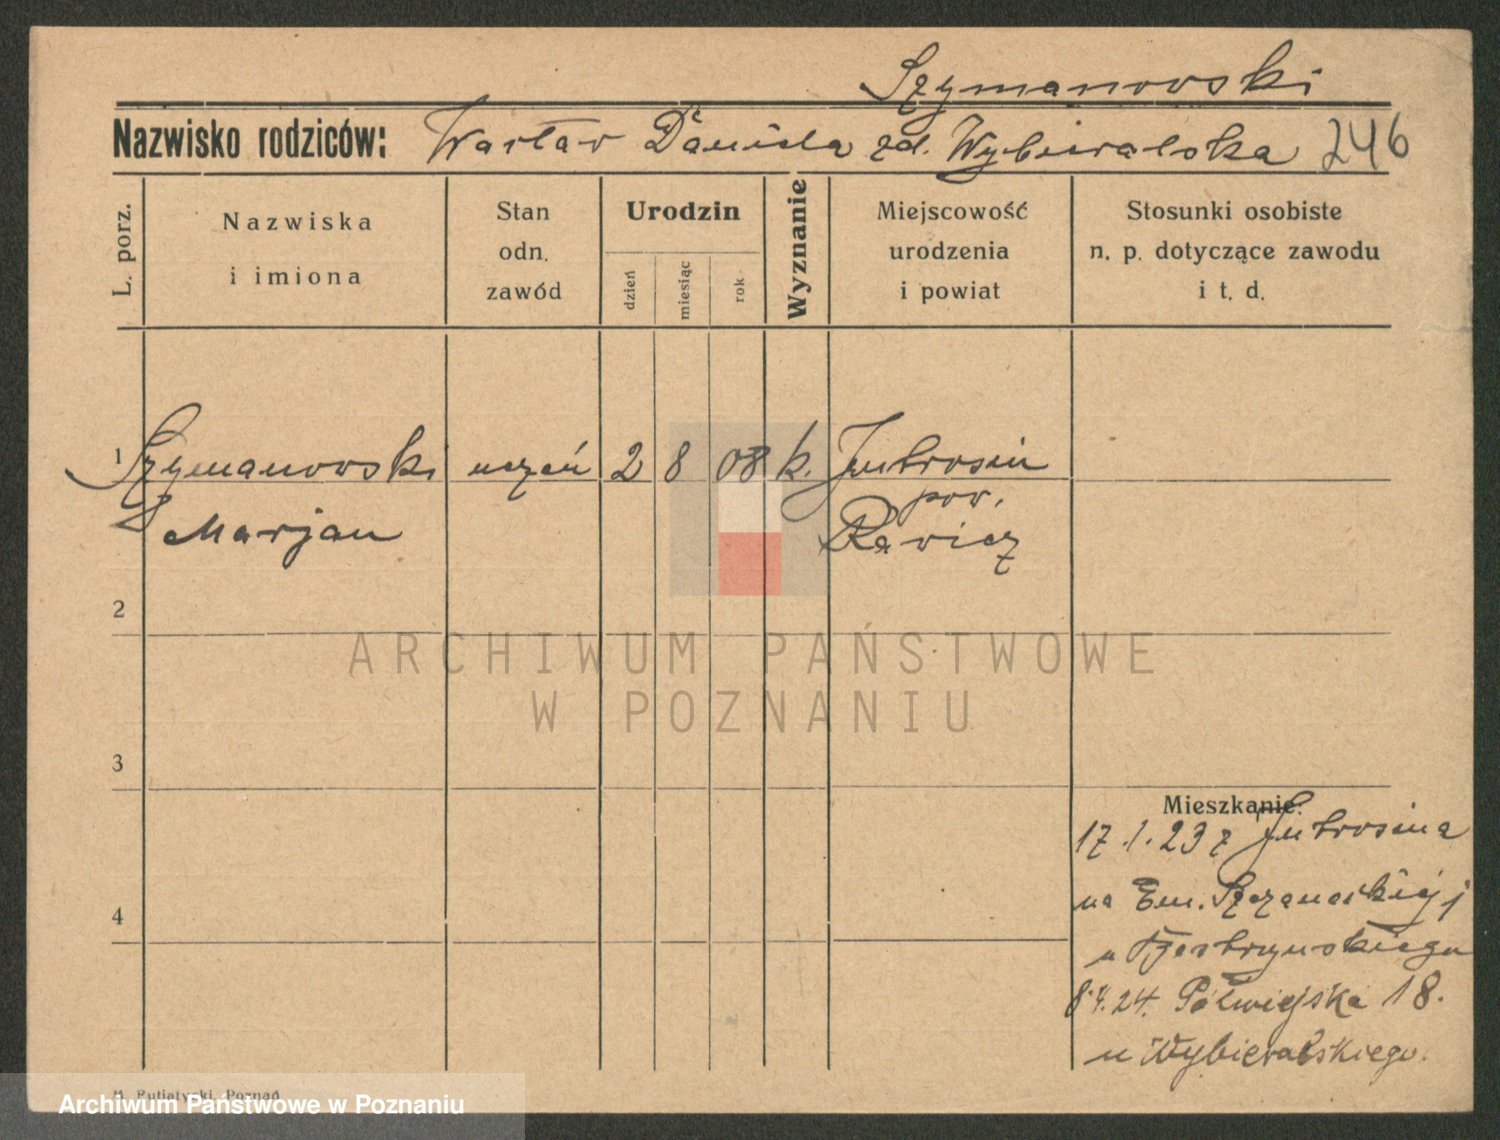 Szymanowski
Nazwisko rodziców: Wacław Daniela zd. Wybieralska 246
L. porz.
Nazwiska
i imiona
Stan
odn.
zawód
Urodzin
dzień
miesiąc
rok
Wyznanie
Miejscowość
urodzenia
i powiat
Stosunki osobiste
n. p. dotyczące zawodu
i t. d.
1 Szymanowski uczeń 2 8 08 k. Jutrosin
Marjan
pow.
Rawicz
2
3
4
ARCHIWUM PAŃSTWOWE
W POZNANIU
Mieszkanie:
17.1.23 z Jutrosina
na Em. Sczanieckiej
u
8.4.24. Półwiejska 18.
u Wybieralskiego.
Poznań
Archiwum Państwowe w Poznaniu